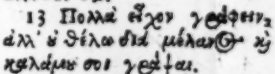 13 Πολλὰ εἶχον γράφειν,
ἀλλ' ȣ θέλω διὰ μέλανος ϗ
καλάμου σοι γράψαι.